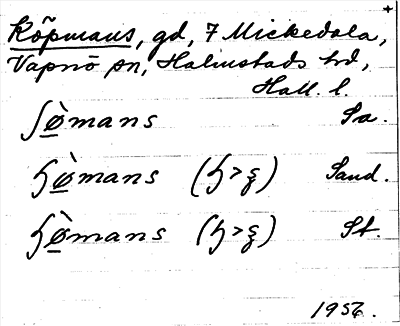 Köpmans, gd, 7 Mickedala,
Vapnö sn, Halmstads hd,
Hall. l.
ʃø̀mans Sa.
ɧø̀mans (ɧ > ʂ) Sand.
ɧø̀mans (ɧ > ʂ) St.
1956.